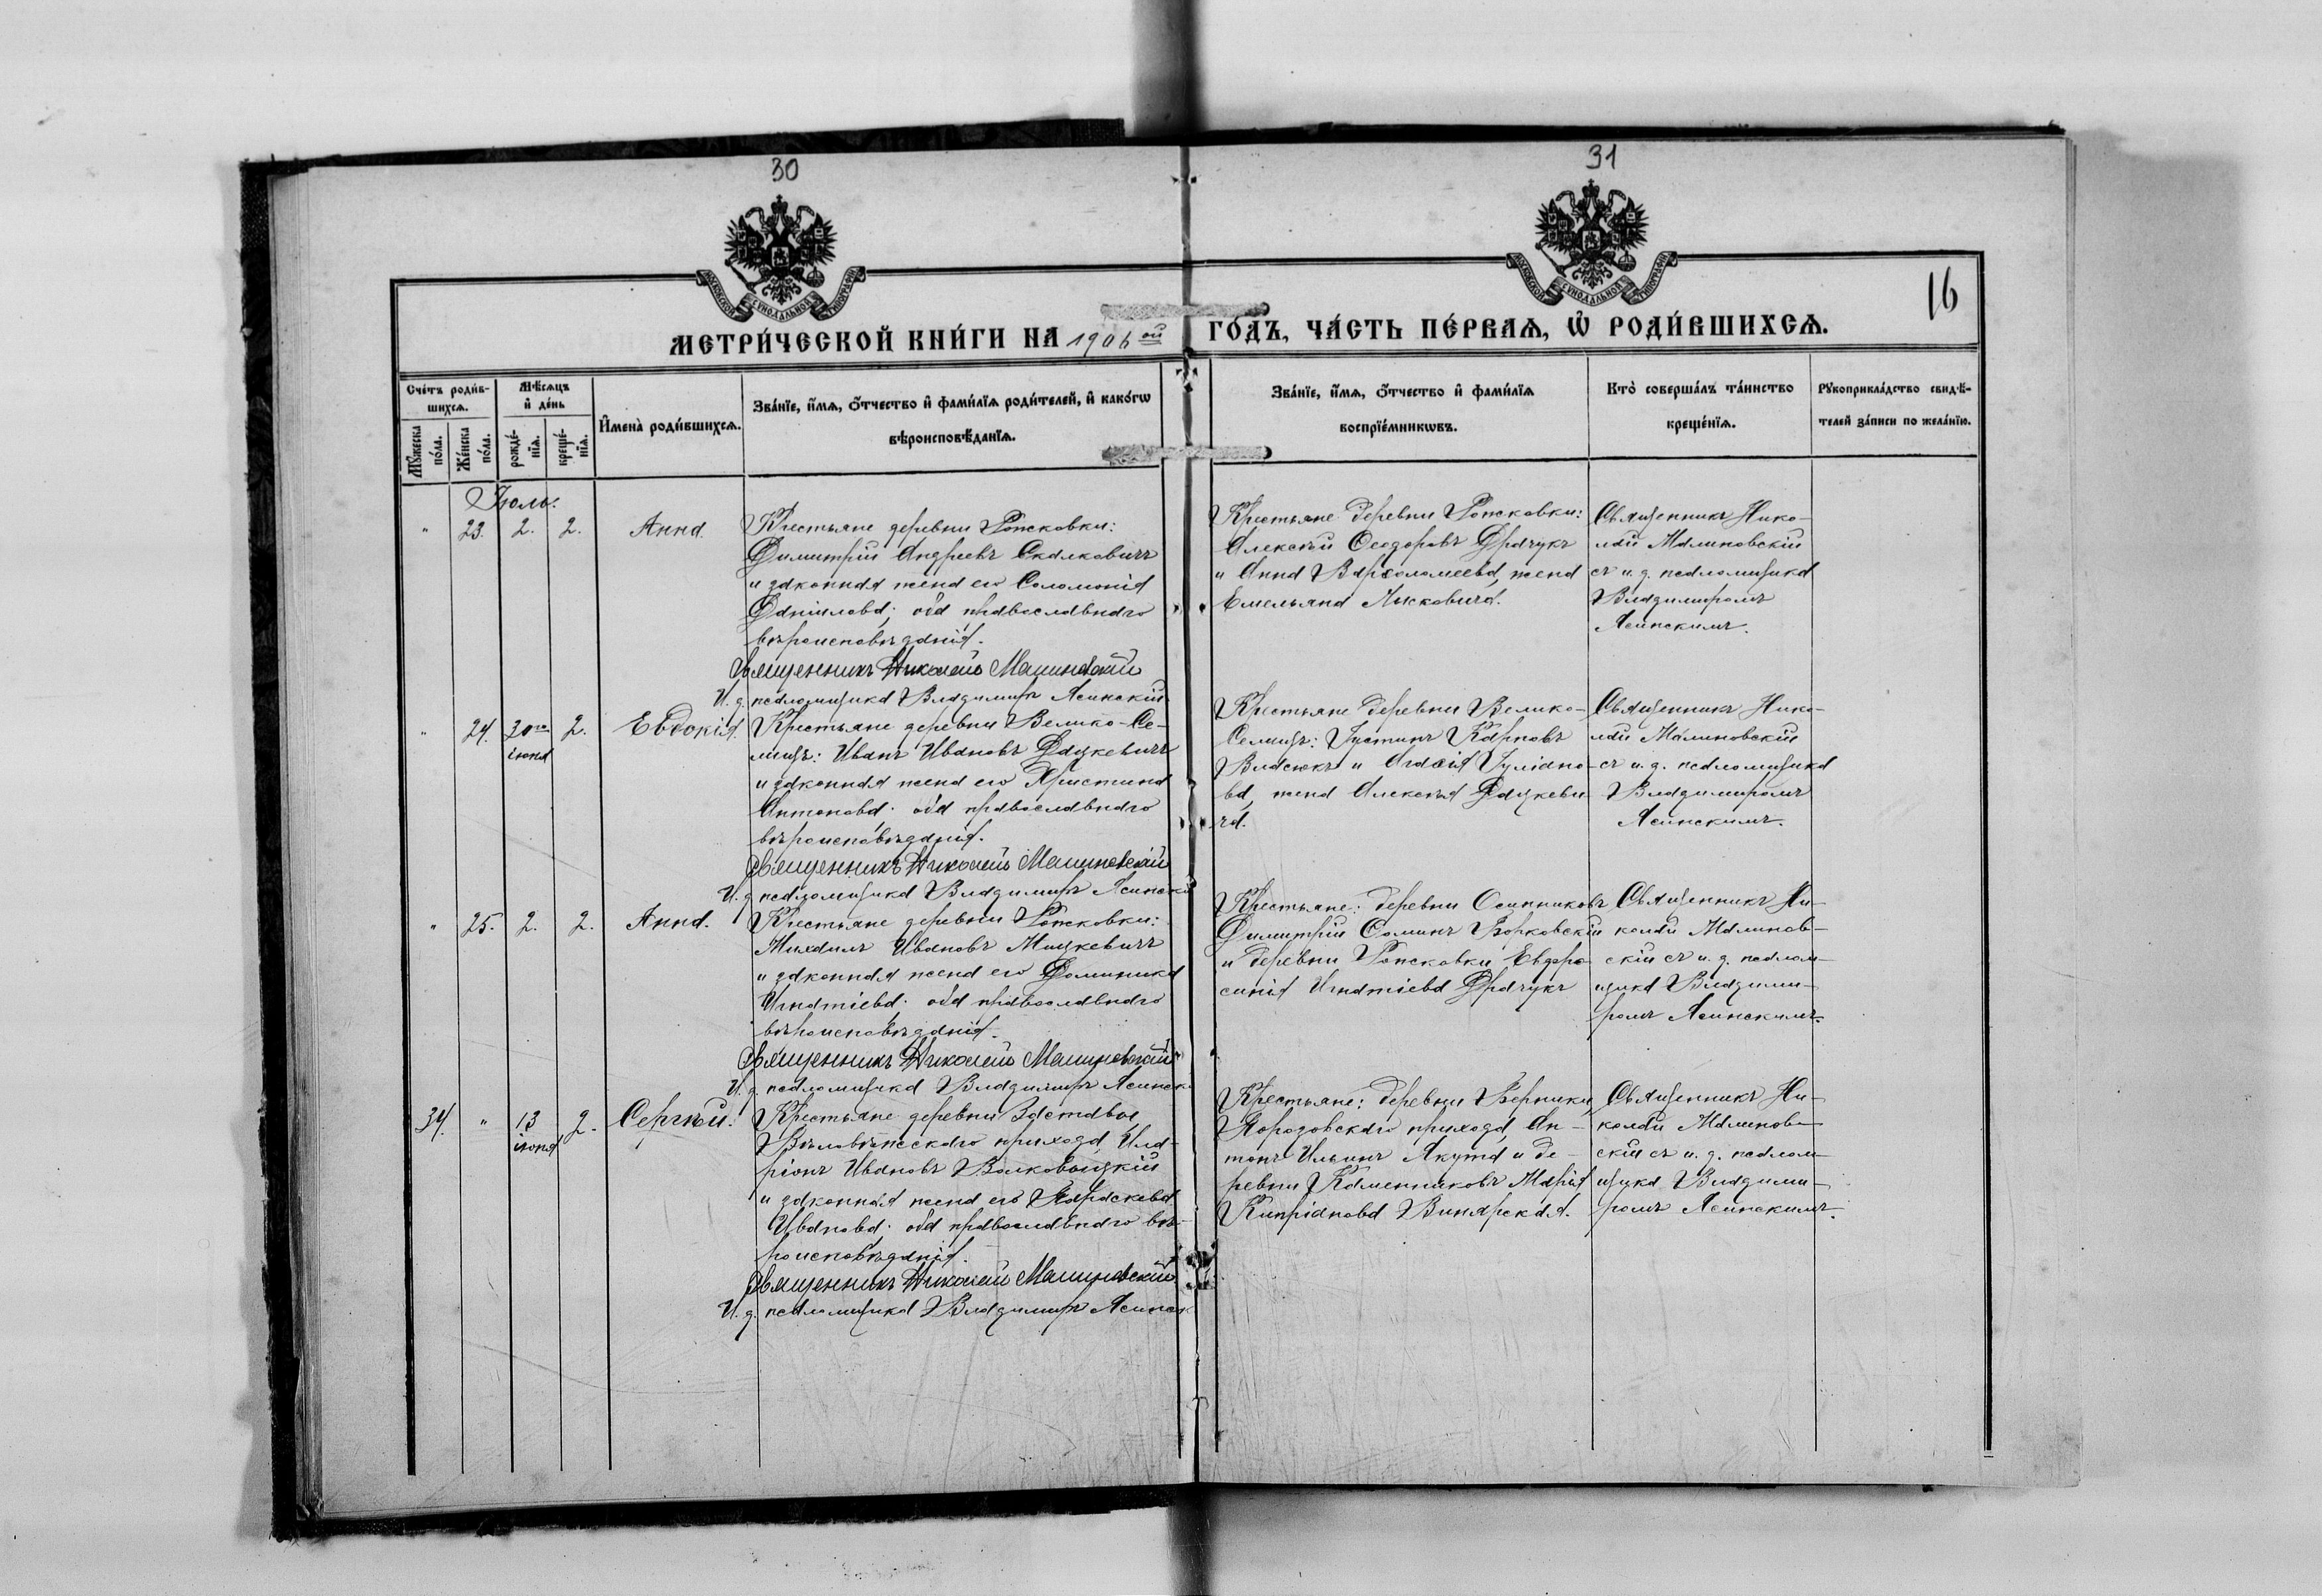 30
31
16
МОСКОВСКОЙ СѴНОДАЛЬНОЙ ТИПОГРАФІИ
МОСКОВСКОЙ СѴНОДАЛЬНОЙ ТИПОГРАФІИ
МЕТРИ́ЧЕСКОЙ КНИ́ГИ НА 1906 ой ГО́ДЪ, ЧА́СТЬ ПЕ́РВАѦ, Ѡ҆ РОДИ́ВШИХСѦ.
Сче́тъ роди́в-
шихсѧ.
Мꙋ́жеска по́ла.
Же́нска по́ла.
Мѣ́сѧцъ
и҆ де́нь
рожде́-
нїѧ.
креще́-
нїѧ.
И҆мена̀ роди́вшихсѧ.
Зва́нїе, и҆́мѧ, ѻ҆́тчество и҆ фами́лїѧ роди́телей, и҆ како́гѡ
вѣроисповѣ́данїѧ.
Зва́нїе, и҆́мѧ, ѻ҆́тчество и҆ фами́лїѧ
воспрїе́мникѡвъ.
Кто̀ соверша́лъ та́инство
креще́нїѧ.
Рꙋкоприкла́дство свидѣ́-
телей за́писи по жела́нїю.
Іюль.
" 23. 2. 2. Анна.
Крестьяне деревни Ротсковки:
Димитрій Андреевъ Скалковичъ
и законная жена его Соломонія
Даніилова; оба православнаго
вѣроисповѣданія.
Священникъ Николай Малиновскій
И. д. псаломщика Владиміръ Ясинскій
Крестьяне деревни Ротсковки:
Алексѣй Ѳеодоровъ Драчукъ
и Анна Варѳоломеева, жена
Емельяна Лысковича.
Священникъ Нико-
лай Малиновскій
съ и. д. псаломщика
Владиміромъ
Ясинскимъ.
" 24. 30го іюня 2. Евдокія.
Крестьяне деревни Велико-Се-
лищъ: Иванъ Ивановъ Дацкевичъ
и законная жена его Христина
Антонова; оба православнаго
вѣроисповѣданія.
Священникъ Николай Малиновскій
И. д. псаломщика Владиміръ Ясинскі
Крестьяне деревни Велико-
Селищъ: Іустинъ Карповъ
Власюкъ и Агаѳія Іуліано-
ва, жена Алексѣя Дацкеви-
ча.
Священникъ Нико-
лай Малиновскій
съ и. д. псаломщика
Владиміромъ
Ясинскимъ.
" 25. 2. 2. Анна.
Крестьяне деревни Ротсковки:
Михаилъ Ивановъ Мицкевичъ
и законная жена его Доминика
Игнатіева; оба православнаго
вѣроисповѣданія.
Священникъ Николай Малиновскій
И. д. псаломщика Владиміръ Ясинск
Крестьяне: деревни Осинниковъ
Димитрій Соминъ Борковскій
и деревни Ротсковки Евфро-
синія Игнатіева Драчукъ
Священникъ Ни-
колай Малинов-
скій съ и. д. псалом-
щика Владими-
ромъ Ясинскимъ.
34. " 13 іюня 2. Сергѣй.
Крестьяне деревни Заставье
прихода, Ила-
ріонъ Ивановъ Волковыцкій
и законная жена его Параскева
Иванова; оба православнаго вѣ-
роисповѣданія.
Священникъ Николай Малиновскій
И. д. псаломщика Владиміръ Ясинск
Крестьяне: деревни Верники,
Породовскаго прихода, Ан-
тонъ Ильинъ Якута и де-
ревни Каменниковъ Марія
Кипріанова Винярская.
Священникъ Ни-
колай Малинов-
скій съ и. д. псалом-
щика Владими-
ромъ Ясинскимъ.